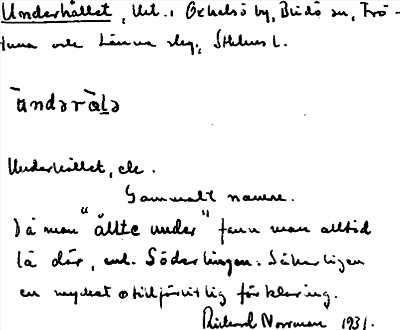 Underhållet, utl. i Oxhalsö by, Blidö sn, Frö-
tuna och Länna skg, Sthlms l.
ùndərɷ̀lə
Underhållet, ele.
Gammalt namn.
Då man "ållte under" fann man alltid
lä där, enl. Söderlingen. Säkerligen
en mycket otillförlitlig förklaring.
Rickard Norrman 1931.